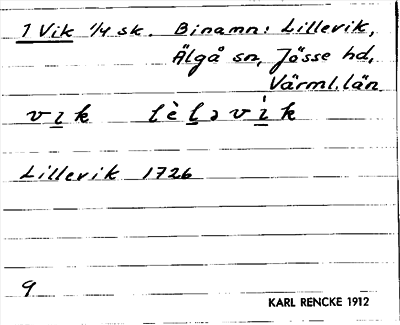 1 Vik 1/4 sk. Binamn: Lillevik,
Älgå sn, Jösse hd,
Värml. län
vık lèləvìk
Lillevik 1726
9
KARL RENCKE 1912